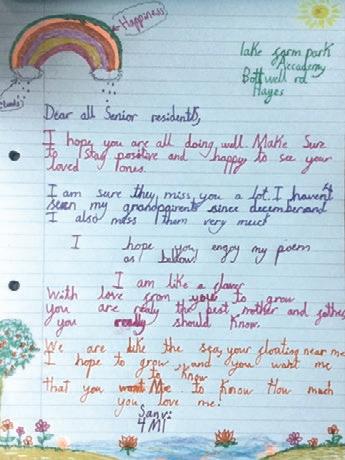 Happiness
lake farm park
Accademy
Bottwell rd
Hayes
Clouds
Dear all Senior residents,
I hope you are all doing well. Make Sure
to stay positive and happy to see your
loved ones.
I am sure they miss you a lot. I haven't
seen my grandparents since december and
I also miss them very much
I hope you enjoy my poem
as bellow!
I am like a flower
With love from you to grow
you are really the best mother and father
you really should know.
We are like the sea, your floating near me
I hope to grow and you want me
to know
that you want Me to Know How much
you love me!
Sanvi
4M1